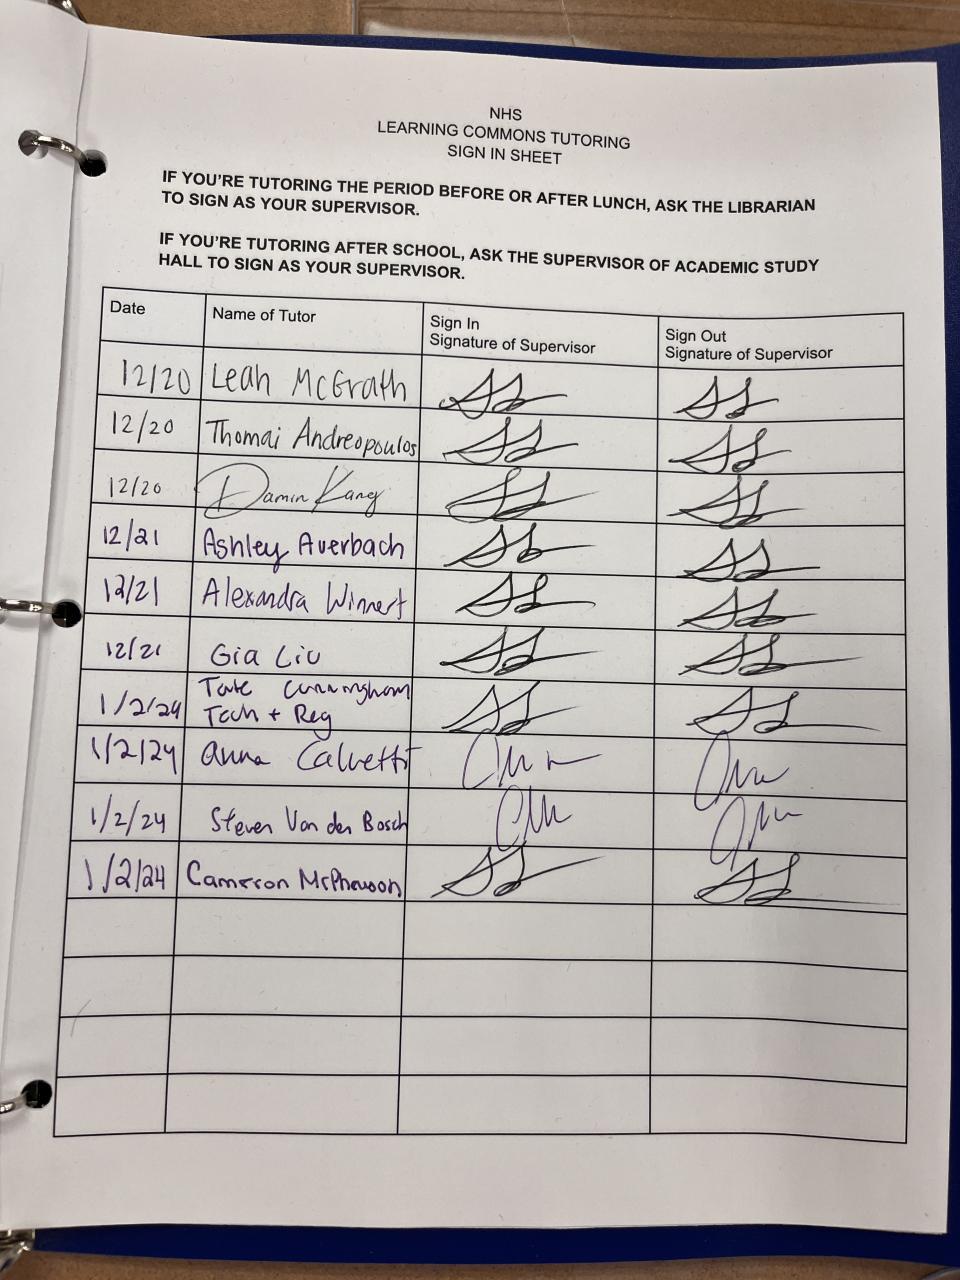 NHS
LEARNING COMMONS TUTORING
SIGN IN SHEET
IF YOU'RE TUTORING THE PERIOD BEFORE OR AFTER LUNCH, ASK THE LIBRARIAN
TO SIGN AS YOUR SUPERVISOR.
IF YOU'RE TUTORING AFTER SCHOOL, ASK THE SUPERVISOR OF ACADEMIC STUDY
HALL TO SIGN AS YOUR SUPERVISOR.
Date Name of Tutor Sign In Sign Out
Signature of Supervisor Signature of Supervisor
12/20 Leah McGrath
12/20 Thomai Andreopoulos
12/20 Damin Kang
12/21 Ashley Averbach
12/21 Alexandra Winnert
12/21 Gia Liu
Tate Cunningham
1/2/24 Tech + Reg
1/2/24 Anna Calvetti
1/2/24 Steven Van den Bosch
1/2/24 Cameron McPhewson